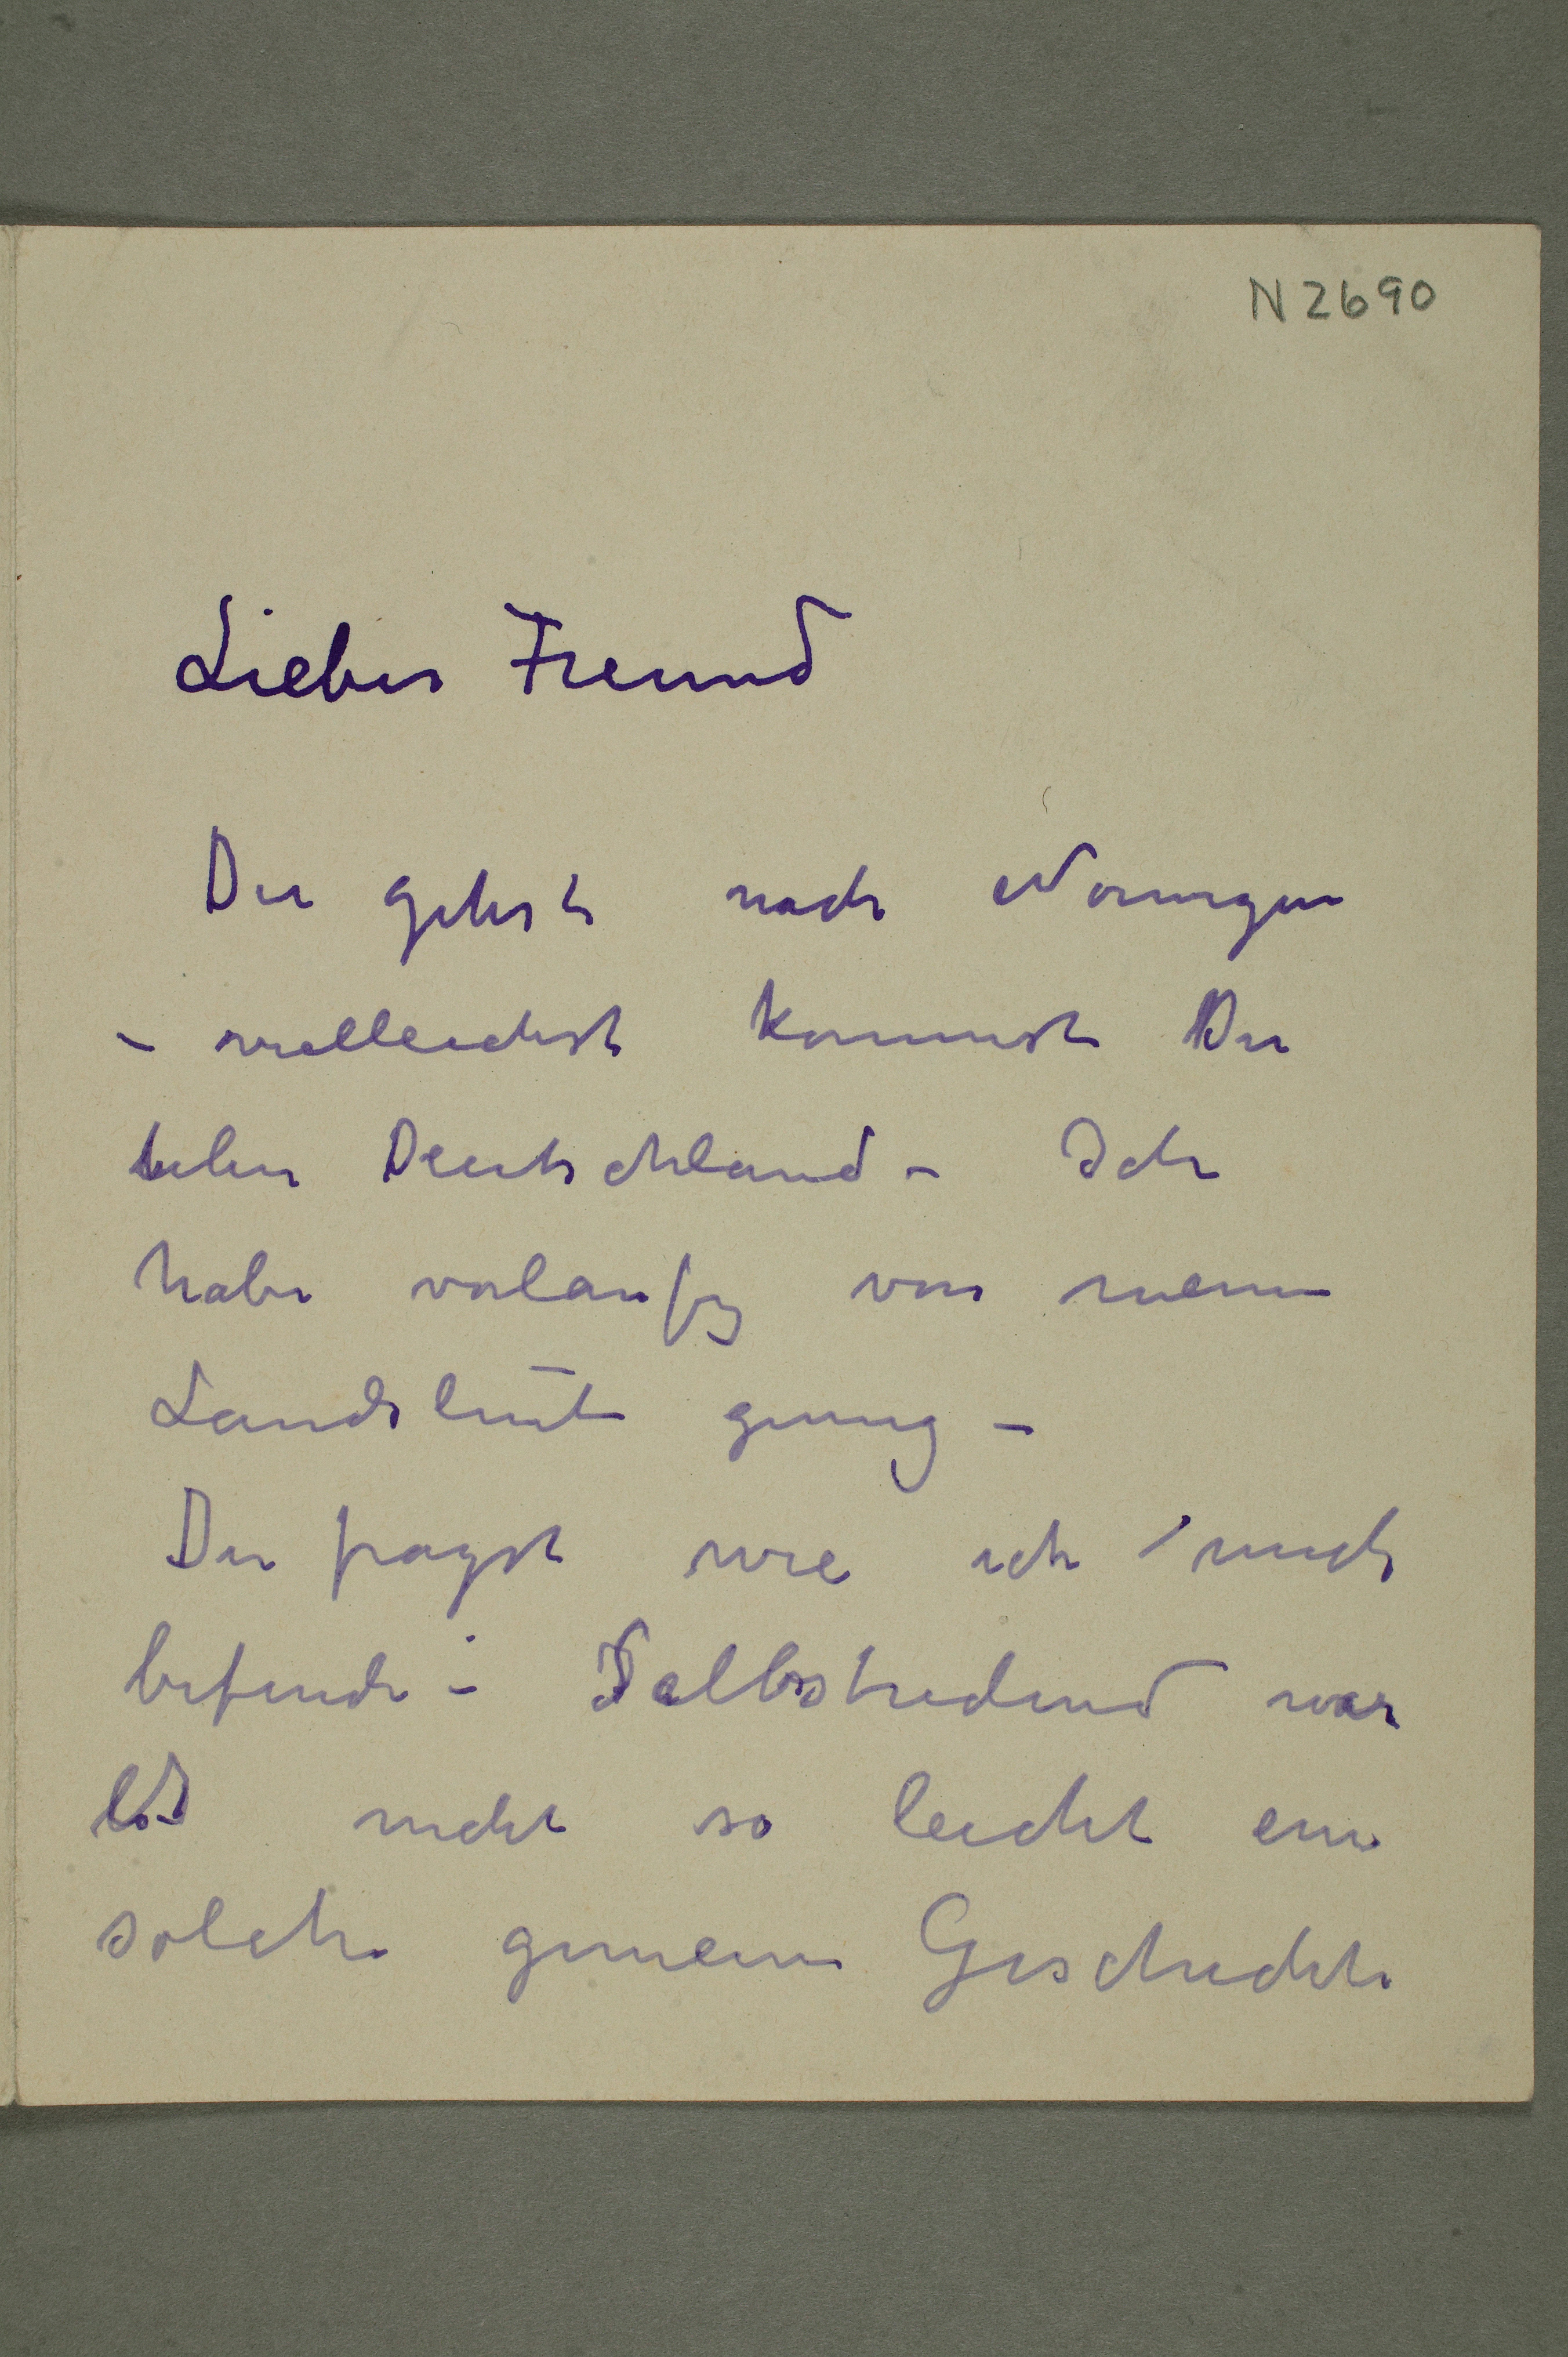 N 2690
Lieber Freund
Du gehst nach Norwegen
– vielleicht kommst Du
über Deutschland – Ich
habe vorlaufig von meine
Landsleute genug –
Du fragst wie ich mich
befinde – Selbstredend war
es nicht so leicht eine
solche gemeine Geschichte